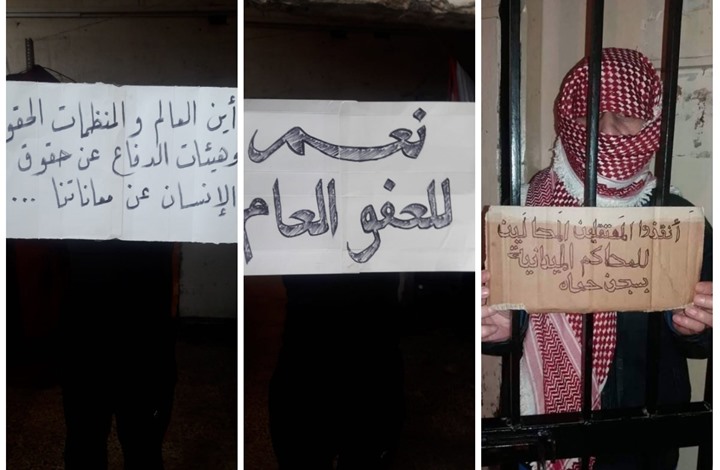 أين العالم والمنظمات الحقو
وهيئات الدفاع عن حقوق
الإنسان عن معاناتنا ...
نعم
للعفو العام
أنقذوا المعتقلين المحالين
للمحاكم الميدانية
بسجن حماه